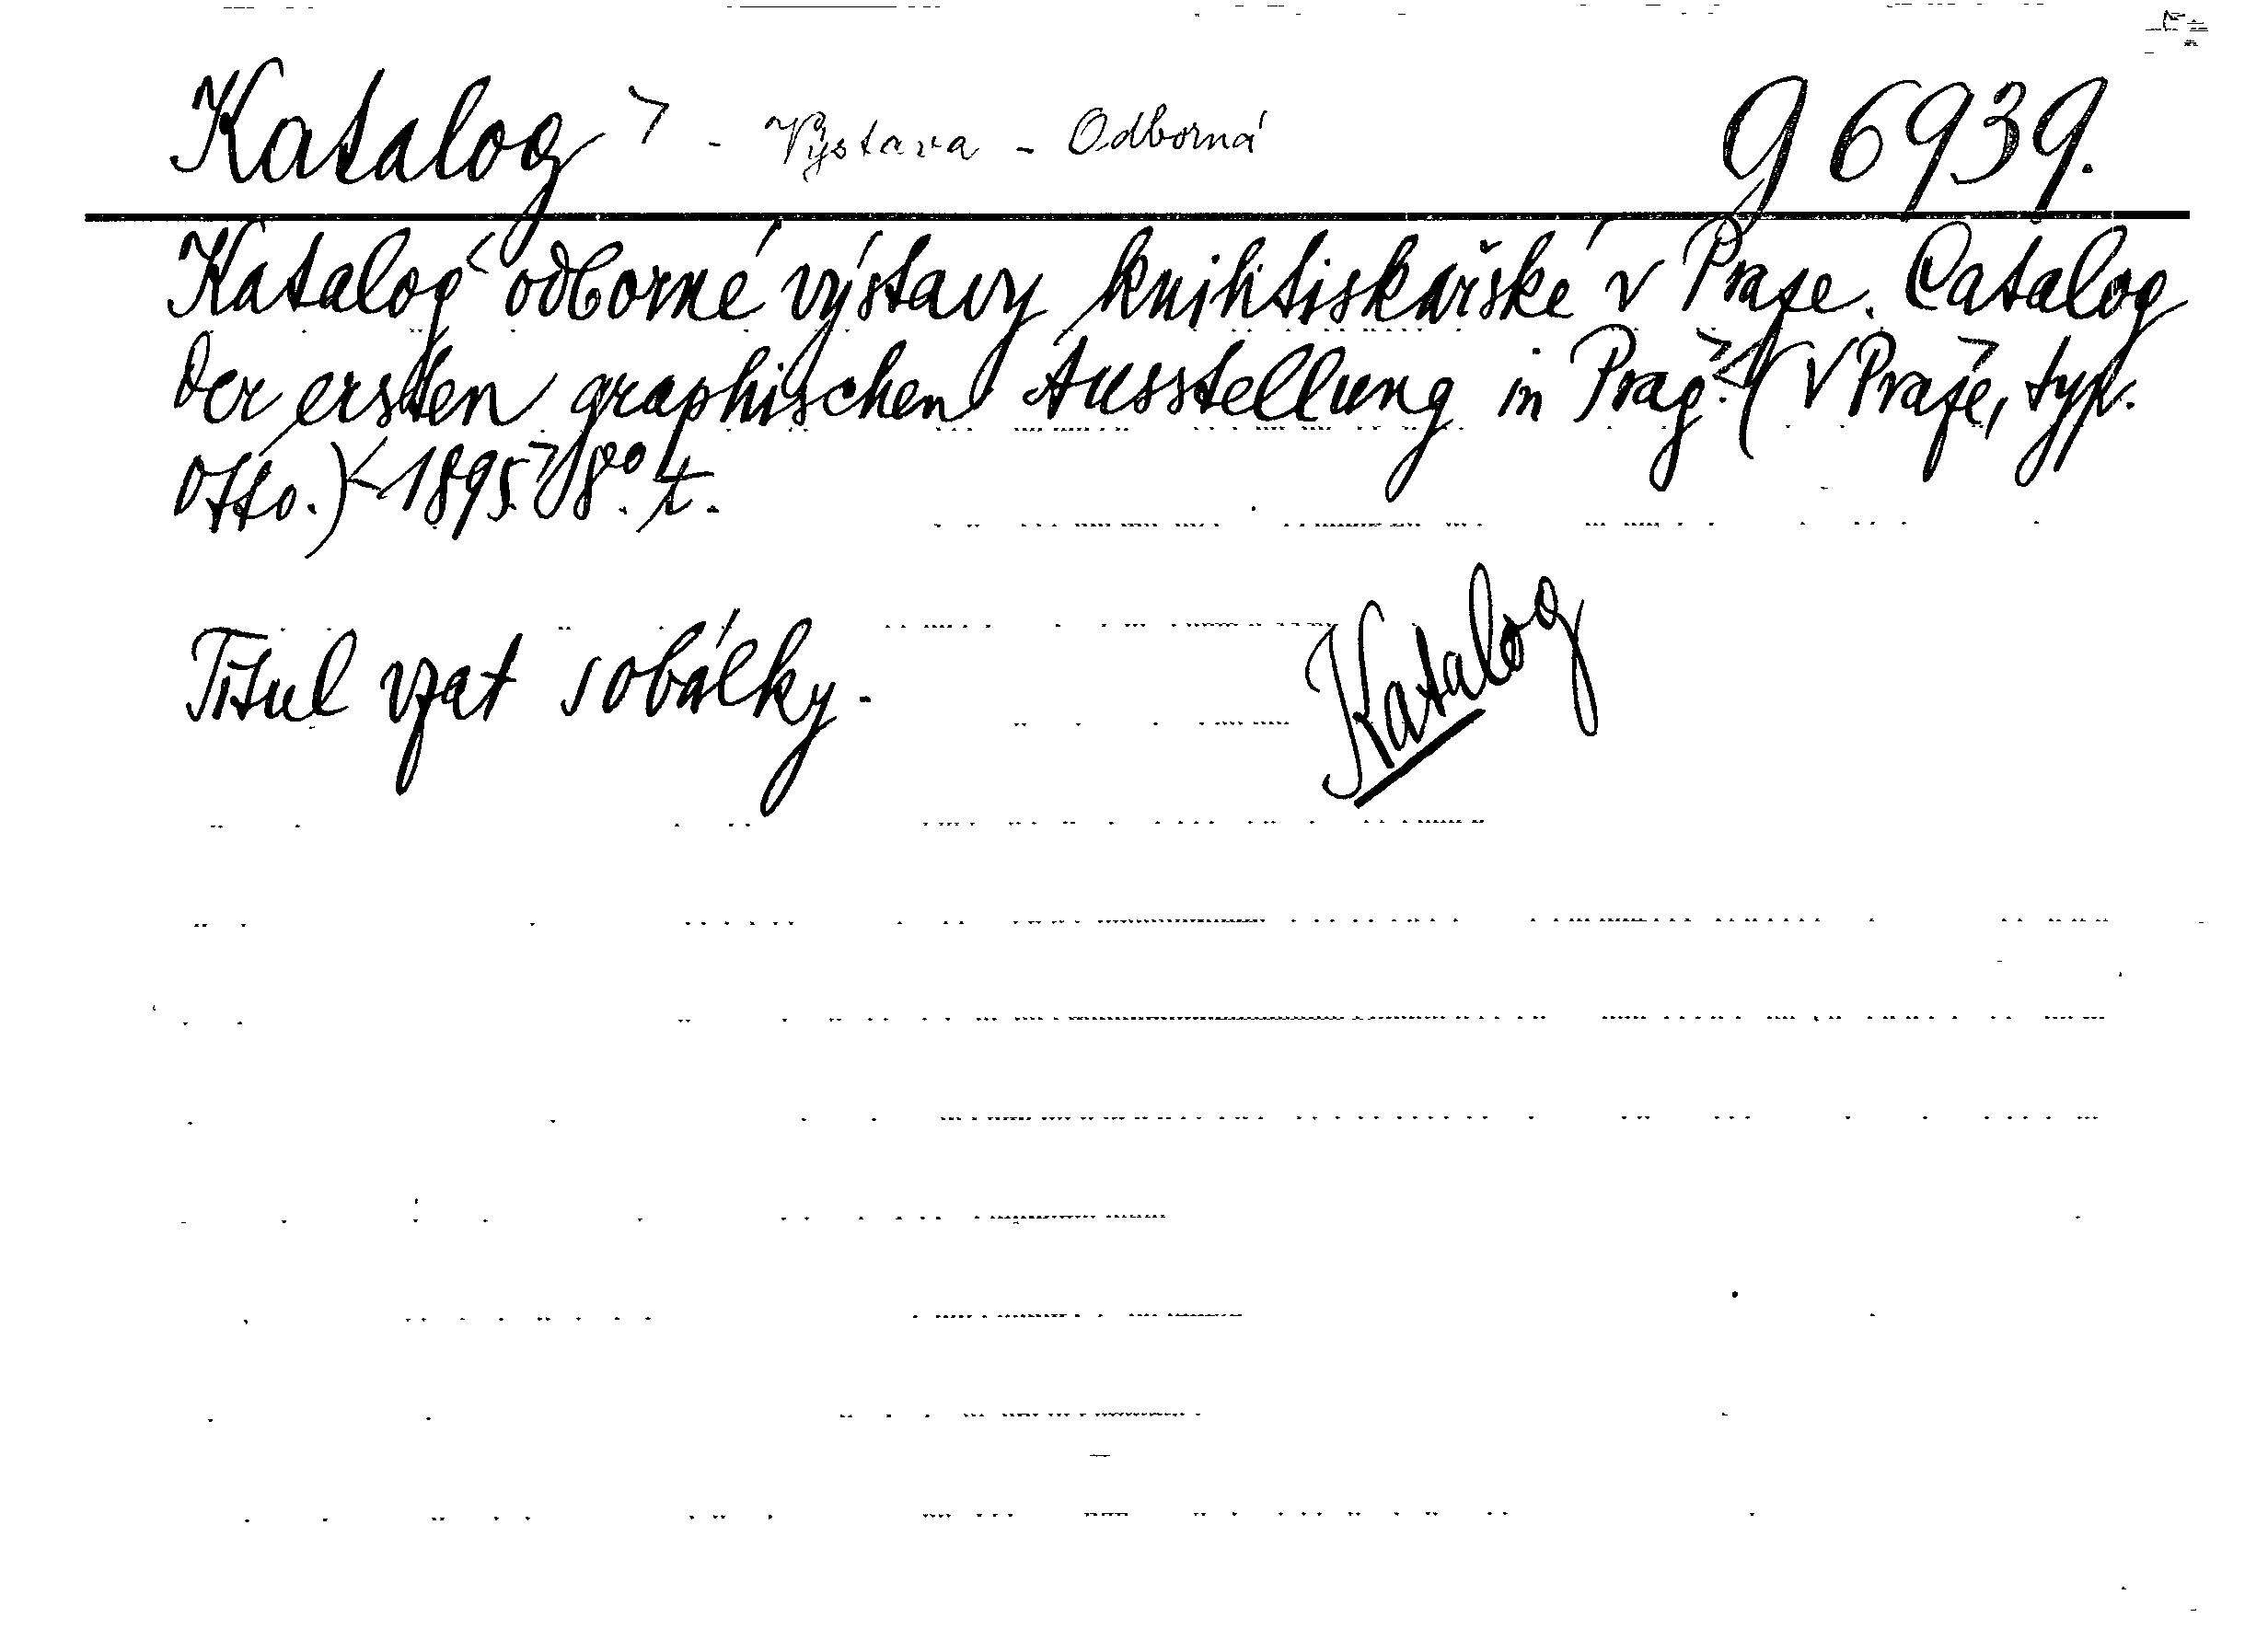 Katalog > - Výstava - Odborná g 6939.
Katalog < odborné výstavy knihtiskařské v Praze. Catalog
der ersten graphischen Ausstellung in Prag. > < (V Praze, > typ.
Otto.) < 1895. > 8°. t.
Titul vzat s obálky.
Katalog